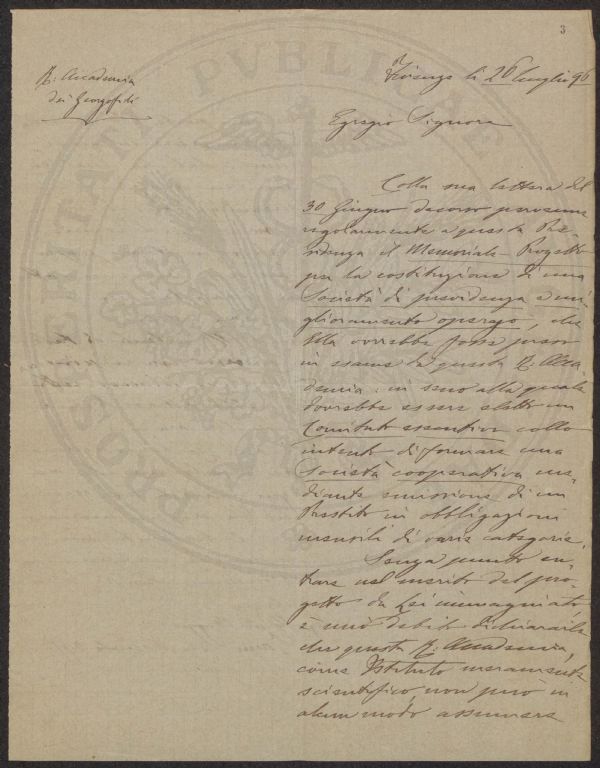 3
R. Accademia
dei Georgofili
Firenze li 26 luglio 96
Egregio Signore
Colla sua lettera del
30 Giugno decorso pervenne
regolarmente a questa Pre-
sidenza il Memoriale-Progetto
per la costituzione di una
Società di previdenza e mi-
glioramento operajo, che
Ella vorrebbe fosse preso
in esame da questa R. Acca-
demia: in seno alla quale
dovrebbe essere eletto un
Comitato esecutivo collo
intento di formare una
Società cooperativa me-
diante emissione di un
Prestito in obbligazioni
mensili di varie categorie.
Senza punto en-
trare nel merito del pro-
getto da Lei immaginato
è mio debito dichiararle
che questa R. Accademia,
come Istituto meramente
scientifico, non può in
alcun modo assumere
PUBLICAE
PROSPERITATI